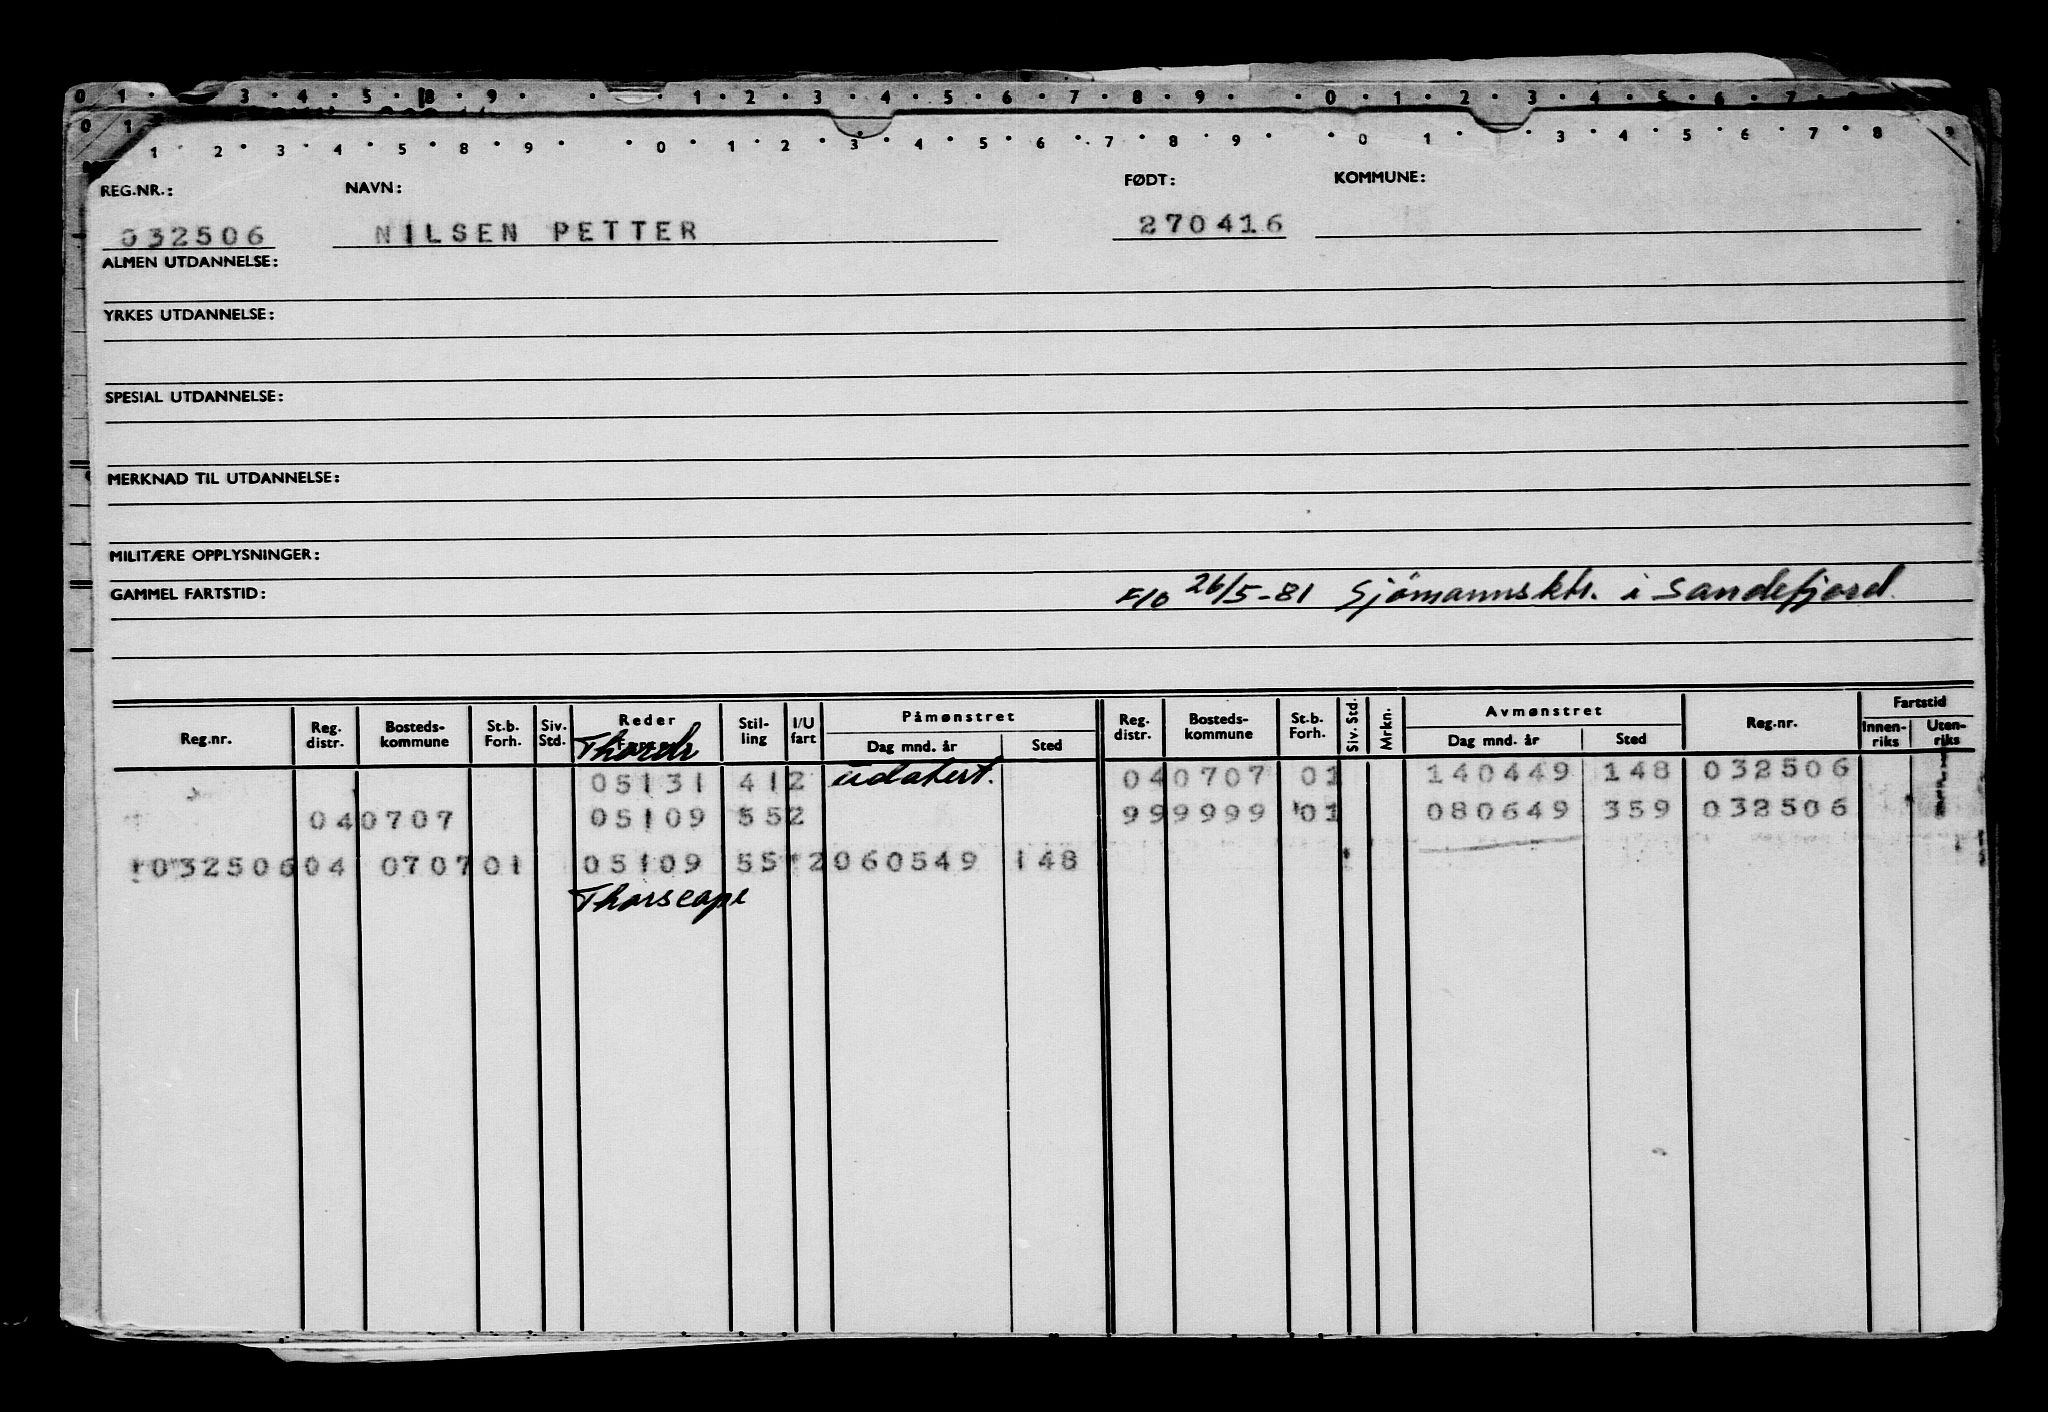 0 1 3 4 5 8 9 1 2 3 4 5 6 7 8 9 0 1 2 3 4 5 6 7
0 1
1 2 3 4 5 8 9 0 1 2 3 4 5 6 7 8 9 0 1 3 4 5 6 7 8 9
REG.NR.: NAVN: FØDT: KOMMUNE:
032506 NILSEN PETTER 270416
ALMEN UTDANNELSE:
YRKES UTDANNELSE:
SPESIAL UTDANNELSE:
MERKNAD TIL UTDANNELSE:
MILITÆRE OPPLYSNINGER:
GAMMEL FARTSTID: 26/5-81 Sjömannsktr. i Sandefjord
Reg.nr. Reg. distr. Bosteds-kommune St.b. Forh. Siv. Std. Reder Stil-ling I/U fart Påmønstret Dag mnd. år Sted Reg. distr. Bosteds-kommune St.b. Forh. Siv. Std. Mrkn. Avmønstret Dag mnd. år Sted Reg.nr. Fartstid Innen-riks Uten-riks
05131 412 udatert. 040707 01 140449 148 032506
040707 05109 552 999999 01 080649 359 032506
032506 04 0707 01 05109 55 2 060549 148
Thorscape